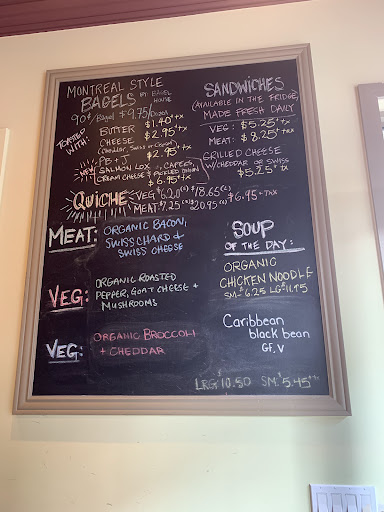 MONTREAL STYLE
BAGELS BY: BAGEL HOUSE
90¢/Bagel $9.75/Dozen
TOASTED WITH:
BUTTER $1.40+tx
CHEESE $2.95+tx
(Cheddar, Swiss or Cream)
PB + J $2.95+tx
NEW SALMON LOX, CAPERS,
CREAM CHEESE & PICKLED ONIONS
$6.95+tx
SANDWICHES
(AVAILABLE IN THE FRIDGE,
MADE FRESH DAILY
VEG: $5.25+tx
MEAT: $8.25+tax
GRILLED CHEESE
W/CHEDDAR OR SWISS
$5.25+tx
QUICHE
VEG $6.20 $18.65
MEAT $7.25 $20.95 $6.95+tax
MEAT: ORGANIC BACON,
SWISS CHARD &
SWISS CHEESE
VEG: ORGANIC ROASTED
PEPPER, GOAT CHEESE +
MUSHROOMS
VEG: ORGANIC BROCCOLI
+ CHEDDAR
SOUP
OF THE DAY:
ORGANIC
CHICKEN NOODLE
SM-$6.25 LG $11.95
Caribbean
black bean
GF, V
LRG $10.50 SM $5.45